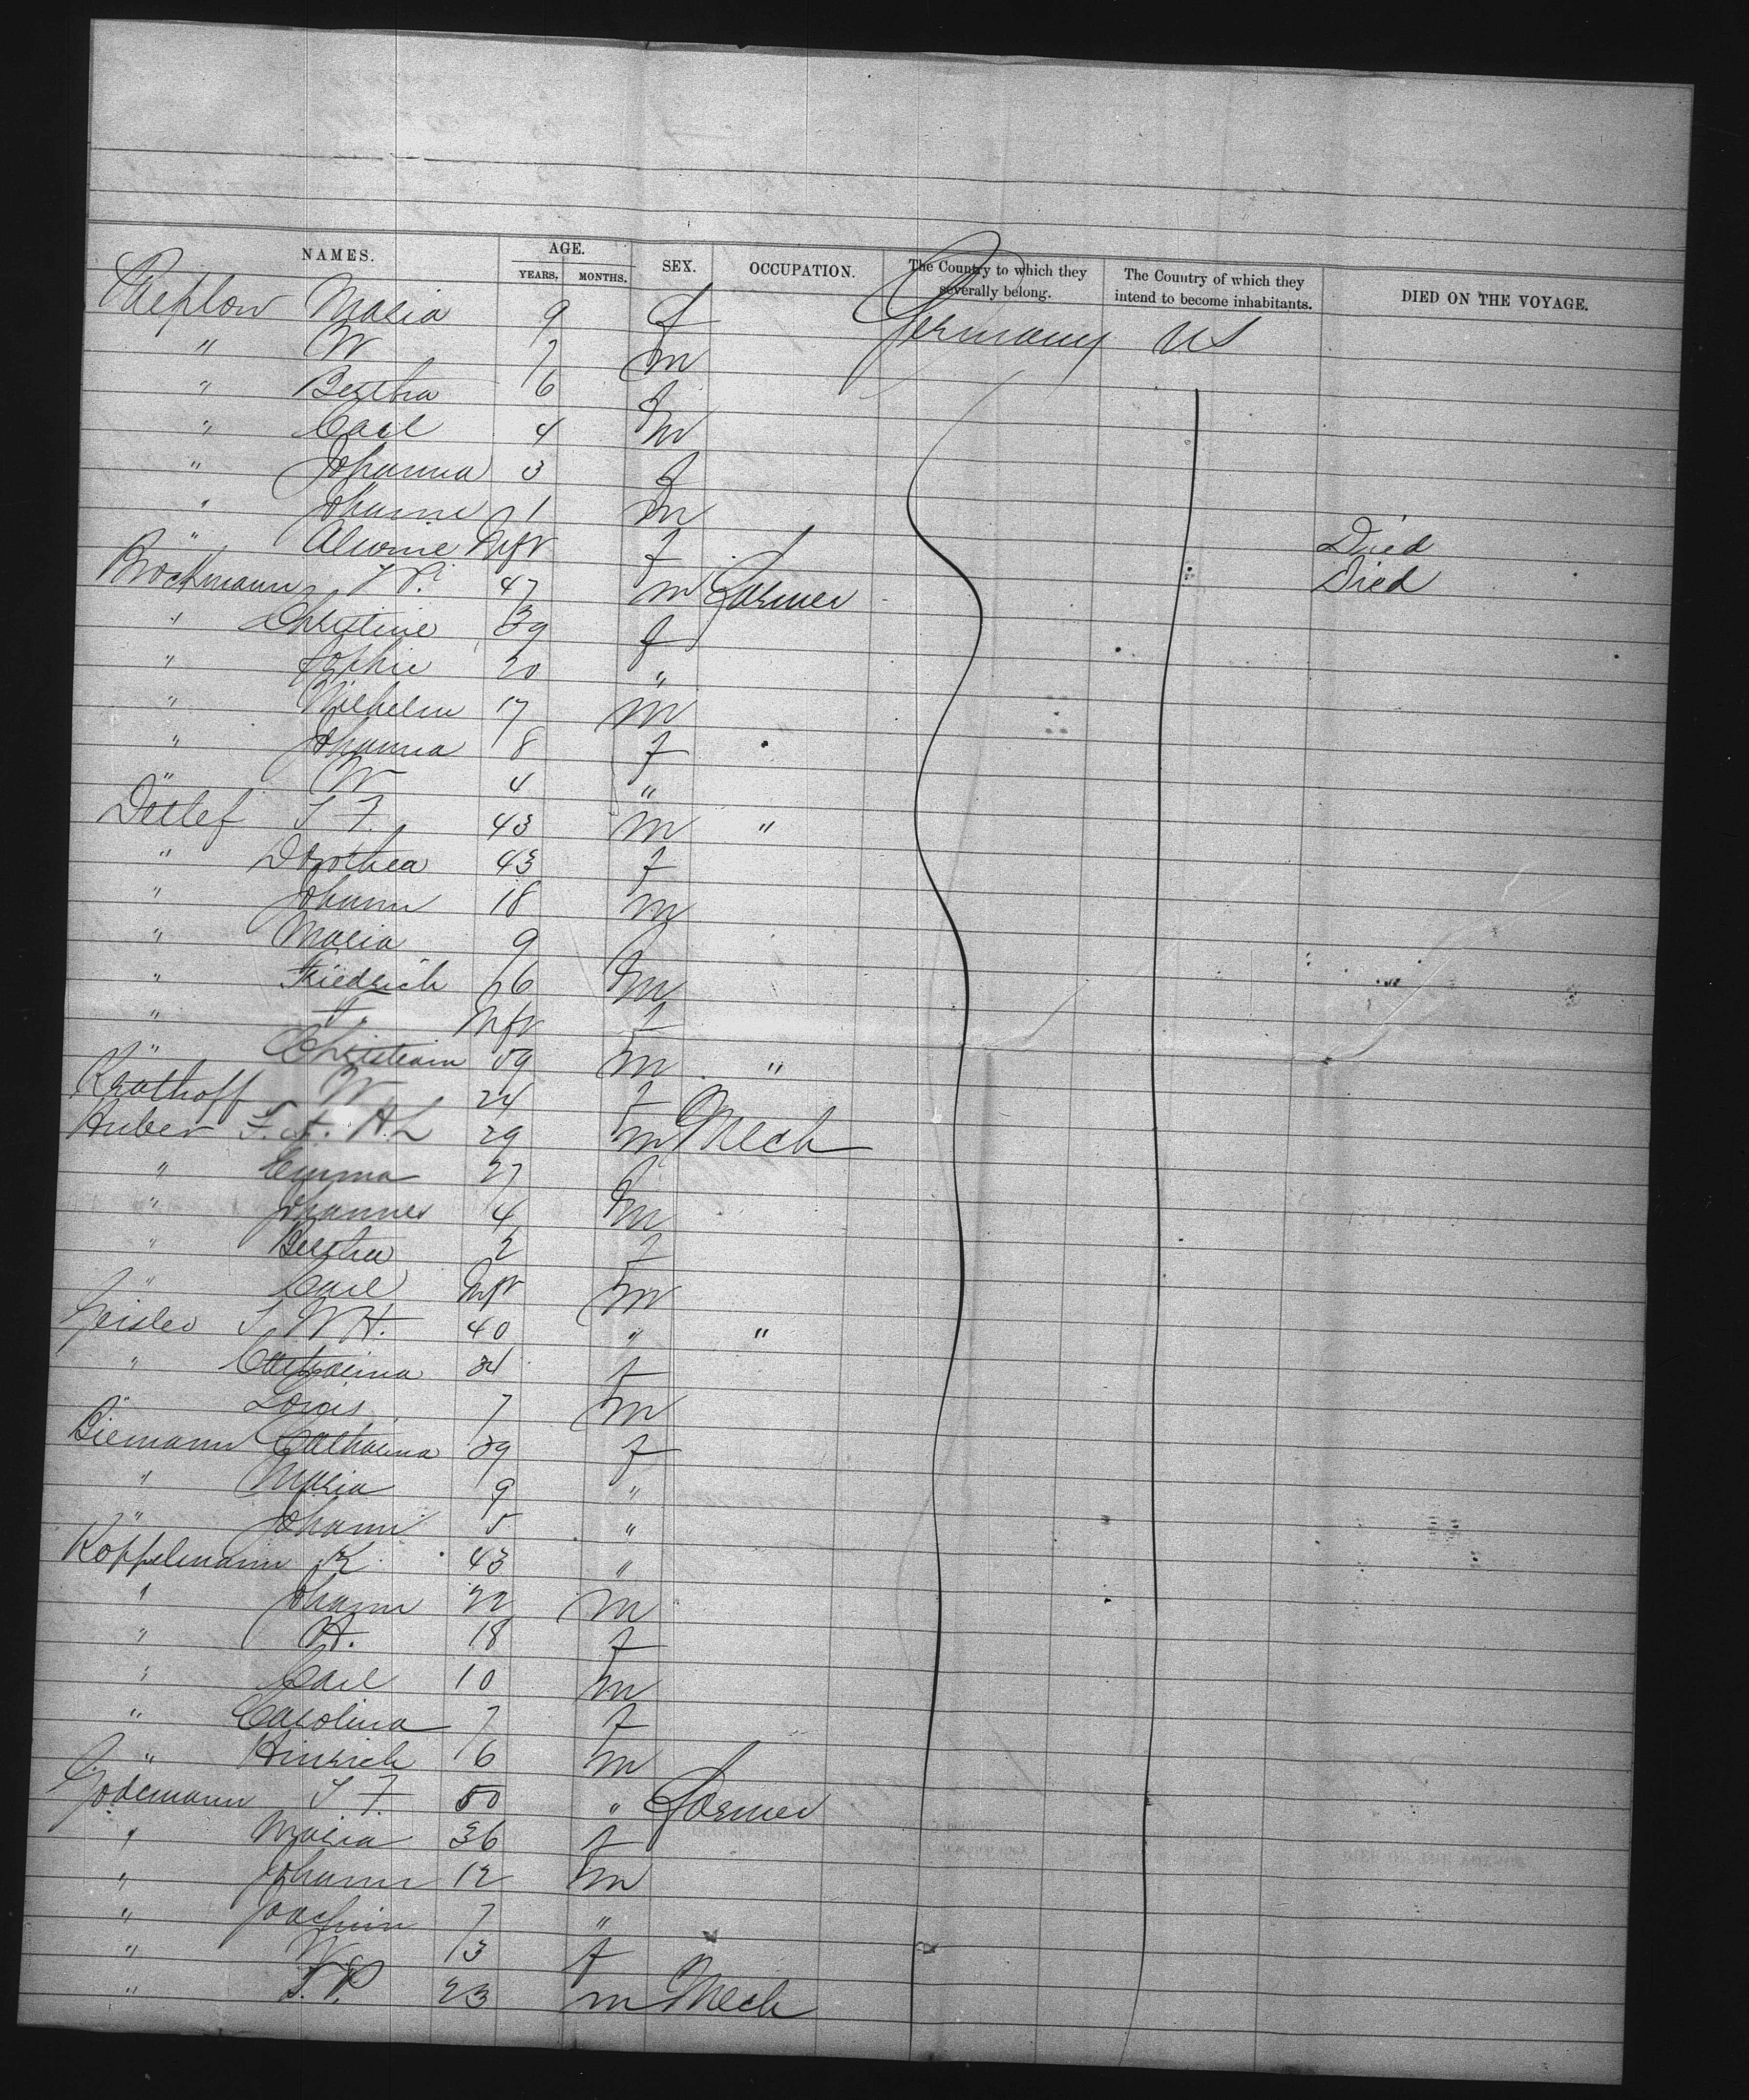 NAMES. AGE. SEX. OCCUPATION. The Country to which they severally belong. The Country of which they intend to become inhabitants. DIED ON THE VOYAGE.
YEARS. MONTHS.
Maria 9 f Germany US
" W 7 m
" Bertha 6 f
" Carl 4 m
" Johanna 3 f
" Johann 1 m
" Alwine Inft f Died
Brockmann 47 m Farmer Died
" Christine 39 f
" Sophie 20 "
" Wilhelm 17 m
" Johanna 8 f
" W 4 "
Detlef J F. 43 m "
" Dorothea 43 f
" Johann 18 m
" Maria 9 f
" Friedrich 6 m
" Inft f
" Christian 59 m "
Krathoff W 24 f
Huber F. A. H. L 29 m Mech
" Emma 27 f
" Johannes 4 m
" Bertha 2 f
" Carl Inft m
Geisler J W H. 40 " "
" Catharina 34 f
" Louis 7 m
Biemann Catharina 39 f
" Maria 9 "
" Johann 5 "
Koppelmann K 43 "
" Johann 22 m
" H. 18 f
" Carl 10 m
" Carolina 7 f
" Hinrich 6 m
Godemann J F. 50 " Farmer
" Maria 36 f
" Johann 12 m
" Joachim 7 "
" W 3 f
" J. P. 23 m Mech